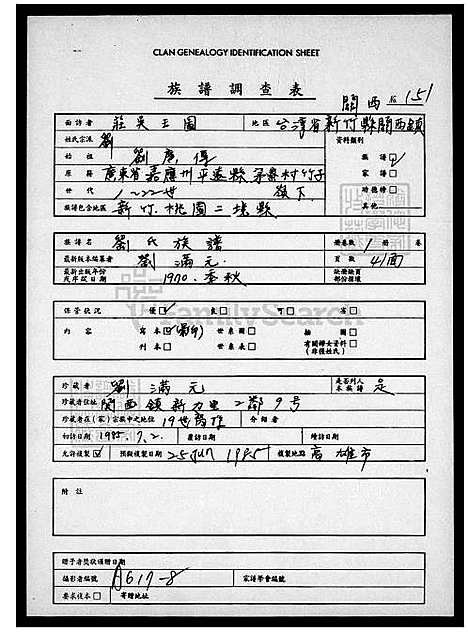 CLAN GENEALOGY IDENTIFICATION SHEET
族譜調查表
関西 № 151
面訪者 莊吳玉圖 地區 台灣省新竹縣関西鎮
姓氏宗派 劉 資料類別
始祖 劉 族譜
原籍 廣東省嘉應州平遠縣 村竹子 家譜
世代 1~22世 嶺下 時德特
族譜包含地區 新竹.桃園二縣 其他
族譜名 劉氏族譜 冊卷數 1 冊 卷
最新版本編纂者 劉滿元 頁數 41面
最新出版年份或序跋日期 1970.季秋 缺冊缺頁部份損壞
FamilySearch
保管狀況 優 良 可 劣
內容 寫本 (影印) 世系圖 插圖
刊本 世系表 有關婦女資料(非僅姓氏)
珍藏者 劉滿元 是否列入本族譜 是
珍藏者住址 関西鎮新力里二鄰9号
珍藏者在(家)宗族中之地位 19世裔孫 介紹者
初訪日期 1985.7.2. 覆訪日期 續訪日期
允許複製 預擬複製日期 25 Jun 1985 複製地點 高雄市
附註
贈予者獎狀頒贈日期
攝影者編號 A617-8 家譜學會編號
要求複本 寄贈地址